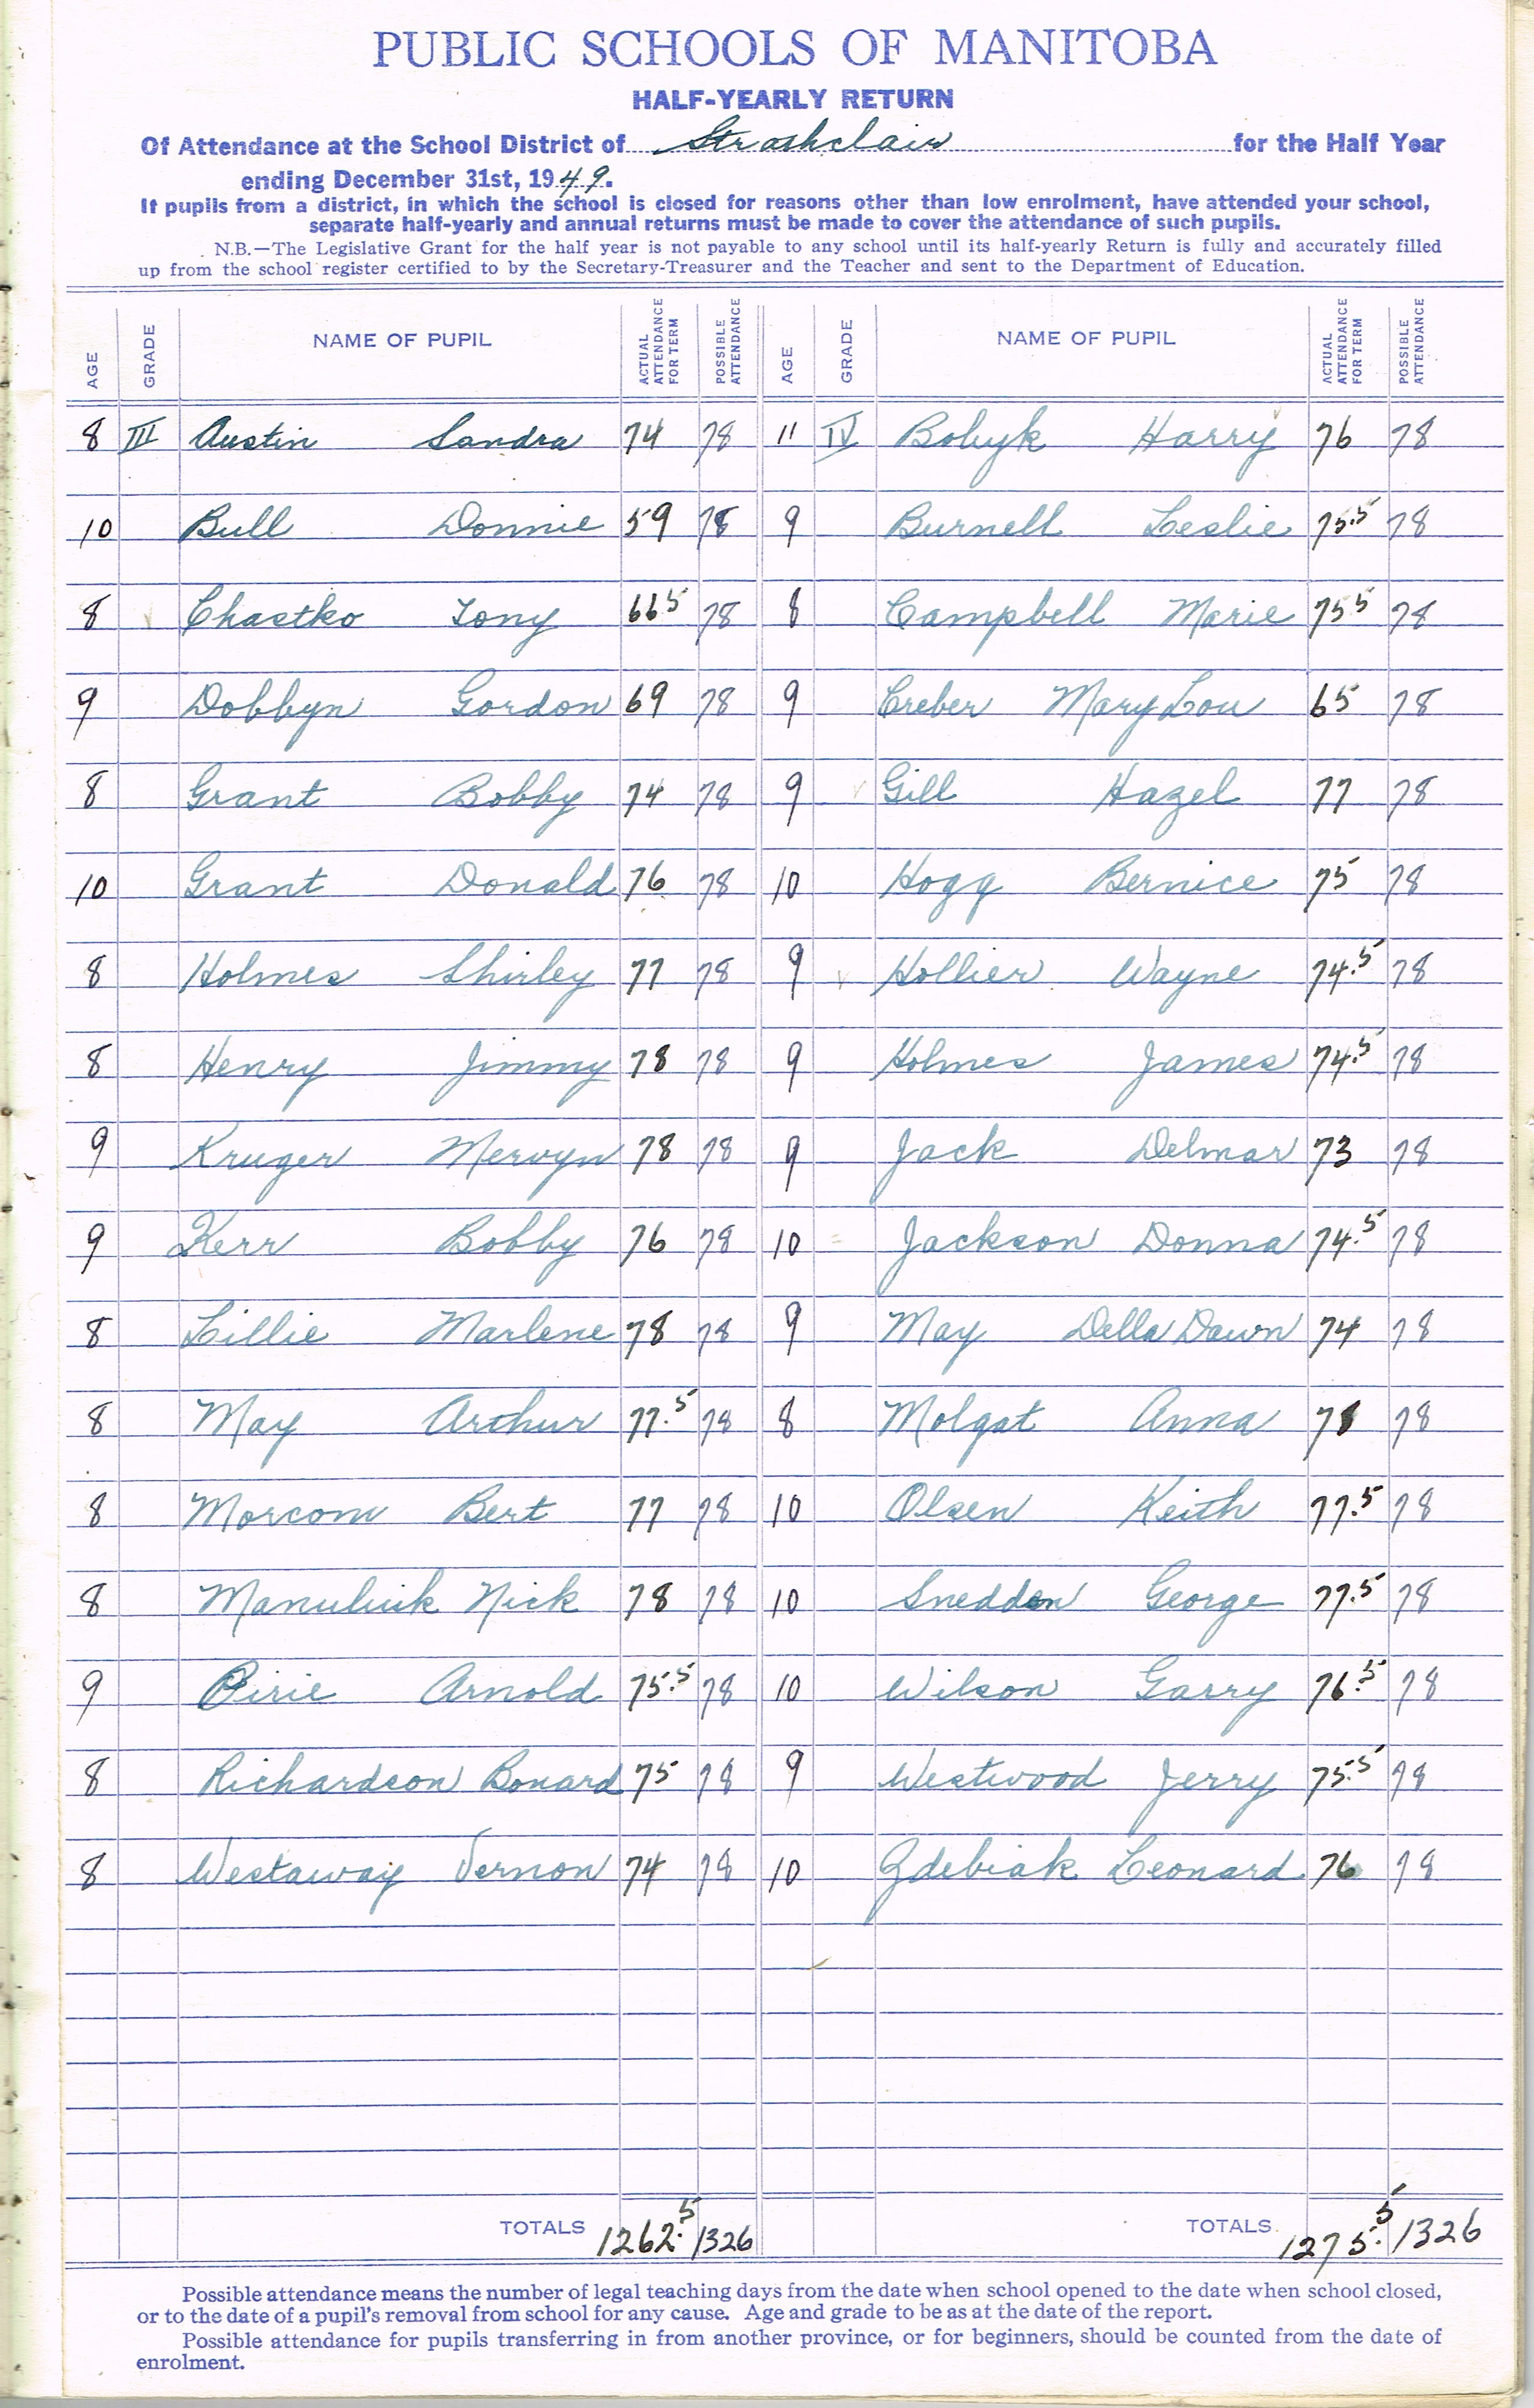 PUBLIC SCHOOLS OF MANITOBA
HALF-YEARLY RETURN
Of Attendance at the School District of Strathclair for the Half Year
ending December 31st, 1949.
If pupils from a district, in which the school is closed for reasons other than low enrolment, have attended your school,
separate half-yearly and annual returns must be made to cover the attendance of such pupils.
N.B.—The Legislative Grant for the half year is not payable to any school until its half-yearly Return is fully and accurately filled
up from the school register certified to by the Secretary-Treasurer and the Teacher and sent to the Department of Education.
AGE GRADE NAME OF PUPIL ACTUAL ATTENDANCE FOR TERM POSSIBLE ATTENDANCE AGE GRADE NAME OF PUPIL ACTUAL ATTENDANCE FOR TERM POSSIBLE ATTENDANCE
8 III Austin Sandra 74 78 11 IV Bobyk Harry 76 78
10 Bull Donnie 59 78 9 Burnell Leslie 75.5 78
8 Chastko Tony 66 5 78 8 Campbell Marie 75.5 78
9 Dobbyn Gordon 69 78 9 Creber Mary Lou 65 78
8 Grant Bobby 74 78 9 Gill Hazel 77 78
10 Grant Donald 76 78 10 Hogg Bernice 75 78
8 Holmes Shirley 77 78 9 Hollier Wayne 74.5 78
8 Henry Jimmy 78 78 9 Holmes James 74.5 78
9 Kruger Mervyn 78 78 9 Jack Delmar 73 78
9 Kerr Bobby 76 78 10 Jackson Donna 74.5 78
8 Lillie Marlene 78 78 9 May Della Dawn 74 78
8 May Arthur 77.5 78 8 Molgat Anna 78 78
8 Morcom Bert 77 78 10 Olsen Keith 77.5 78
8 Nick 78 78 10 Sneddon George 77.5 78
9 Pirie Arnold 75.5 78 10 Wilson Garry 76.5 78
8 Richardson Bonard 75 78 9 Westwood Jerry 75.5 78
8 Westaway Vernon 74 78 10 Zdebiak Leonard 76 78
TOTALS 1262.5 1326 TOTALS 1275.5 1326
Possible attendance means the number of legal teaching days from the date when school opened to the date when school closed,
or to the date of a pupil's removal from school for any cause. Age and grade to be as at the date of the report.
Possible attendance for pupils transferring in from another province, or for beginners, should be counted from the date of
enrolment.